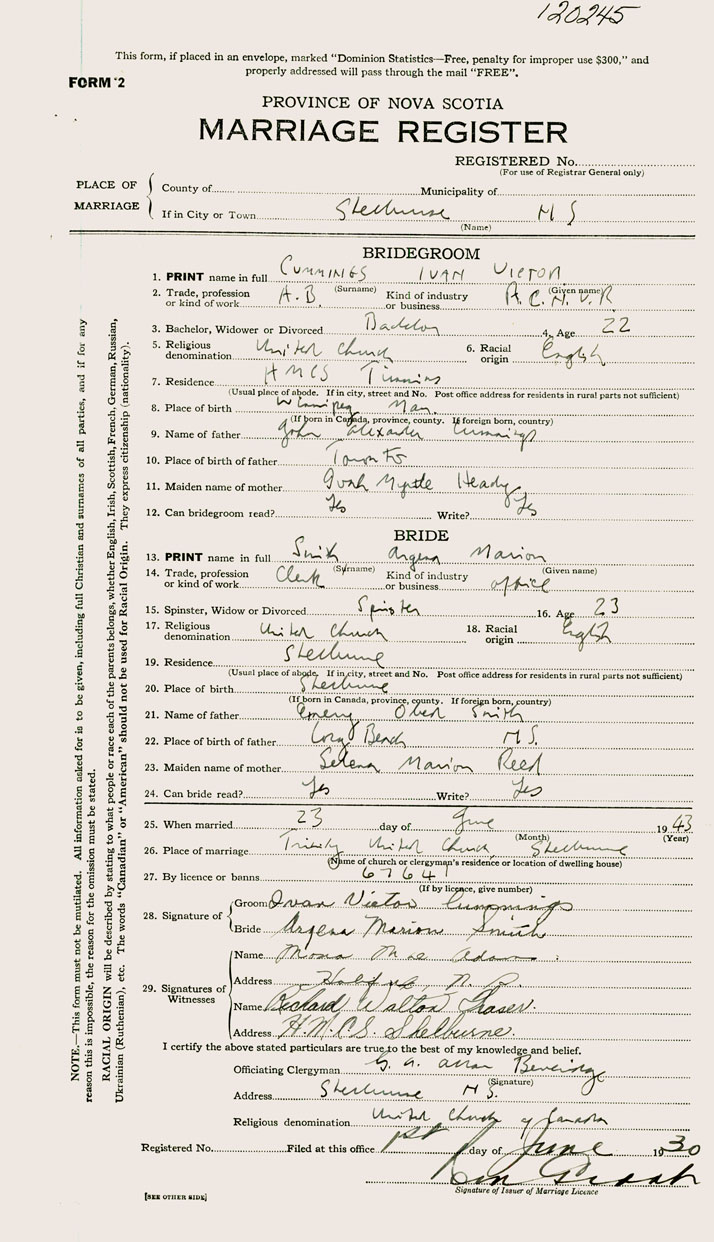 120245
This form, if placed in an envelope, marked "Dominion Statistics—Free, penalty for improper use $300," and
properly addressed will pass through the mail "FREE".
FORM 2
PROVINCE OF NOVA SCOTIA
MARRIAGE REGISTER
REGISTERED No.
(For use of Registrar General only)
PLACE OF MARRIAGE
County of Municipality of
If in City or Town Shelburne N S
(Name)
BRIDEGROOM
1. PRINT name in full CUMMINGS IVAN VICTOR
(Surname) (Given name)
2. Trade, profession or kind of work A.B. Kind of industry or business R.C.N.V.R
3. Bachelor, Widower or Divorced Bachelor 4. Age 22
5. Religious denomination United Church 6. Racial origin English
7. Residence HMCS Timmins
(Usual place of abode. If in city, street and No. Post office address for residents in rural parts not sufficient)
8. Place of birth Winnipeg Man.
(If born in Canada, province, county. If foreign born, country)
9. Name of father John Alexander Cummings
10. Place of birth of father Toronto
11. Maiden name of mother Ivah Myrtle Heady
12. Can bridegroom read? Yes Write? Yes
BRIDE
13. PRINT name in full Smith Argena Marion
(Surname) (Given name)
14. Trade, profession or kind of work Clerk Kind of industry or business office
15. Spinster, Widow or Divorced Spinster 16. Age 23
17. Religious denomination United Church 18. Racial origin English
19. Residence Shelburne
(Usual place of abode. If in city, street and No. Post office address for residents in rural parts not sufficient)
20. Place of birth Shelburne
(If born in Canada, province, county. If foreign born, country)
21. Name of father Emery Obed Smith
22. Place of birth of father Long Beach N.S.
23. Maiden name of mother Selena Marion Reed
24. Can bride read? Yes Write? Yes
25. When married 23 day of June 1943
(Month) (Year)
26. Place of marriage Trinity United Church, Shelburne
(Name of church or clergyman's residence or location of dwelling house)
27. By licence or banns 67641
(If by licence, give number)
28. Signature of
Groom Ivan Victor Cummings
Bride Argena Marion Smith
29. Signatures of Witnesses
Name Mona Mae Adams
Address Halifax, N.S.
Name Richard Walton Fraser.
Address H.M.C.S. Shelburne.
I certify the above stated particulars are true to the best of my knowledge and belief.
Officiating Clergyman G. A. Allan Beveridge
(Signature)
Address Shelburne N S.
Religious denomination United Church of Canada
Registered No. Filed at this office day of June 1930
Signature of Issuer of Marriage Licence
[SEE OTHER SIDE]
NOTE.—This form must not be mutilated. All information asked for is to be given, including full Christian and surnames of all parties, and if for any
reason this is impossible, the reason for the omission must be stated.
RACIAL ORIGIN will be described by stating to what people or race each of the parents belongs, whether English, Irish, Scottish, French, German, Russian,
Ukrainian (Ruthenian), etc. The words "Canadian" or "American" should not be used for Racial Origin. They express citizenship (nationality).